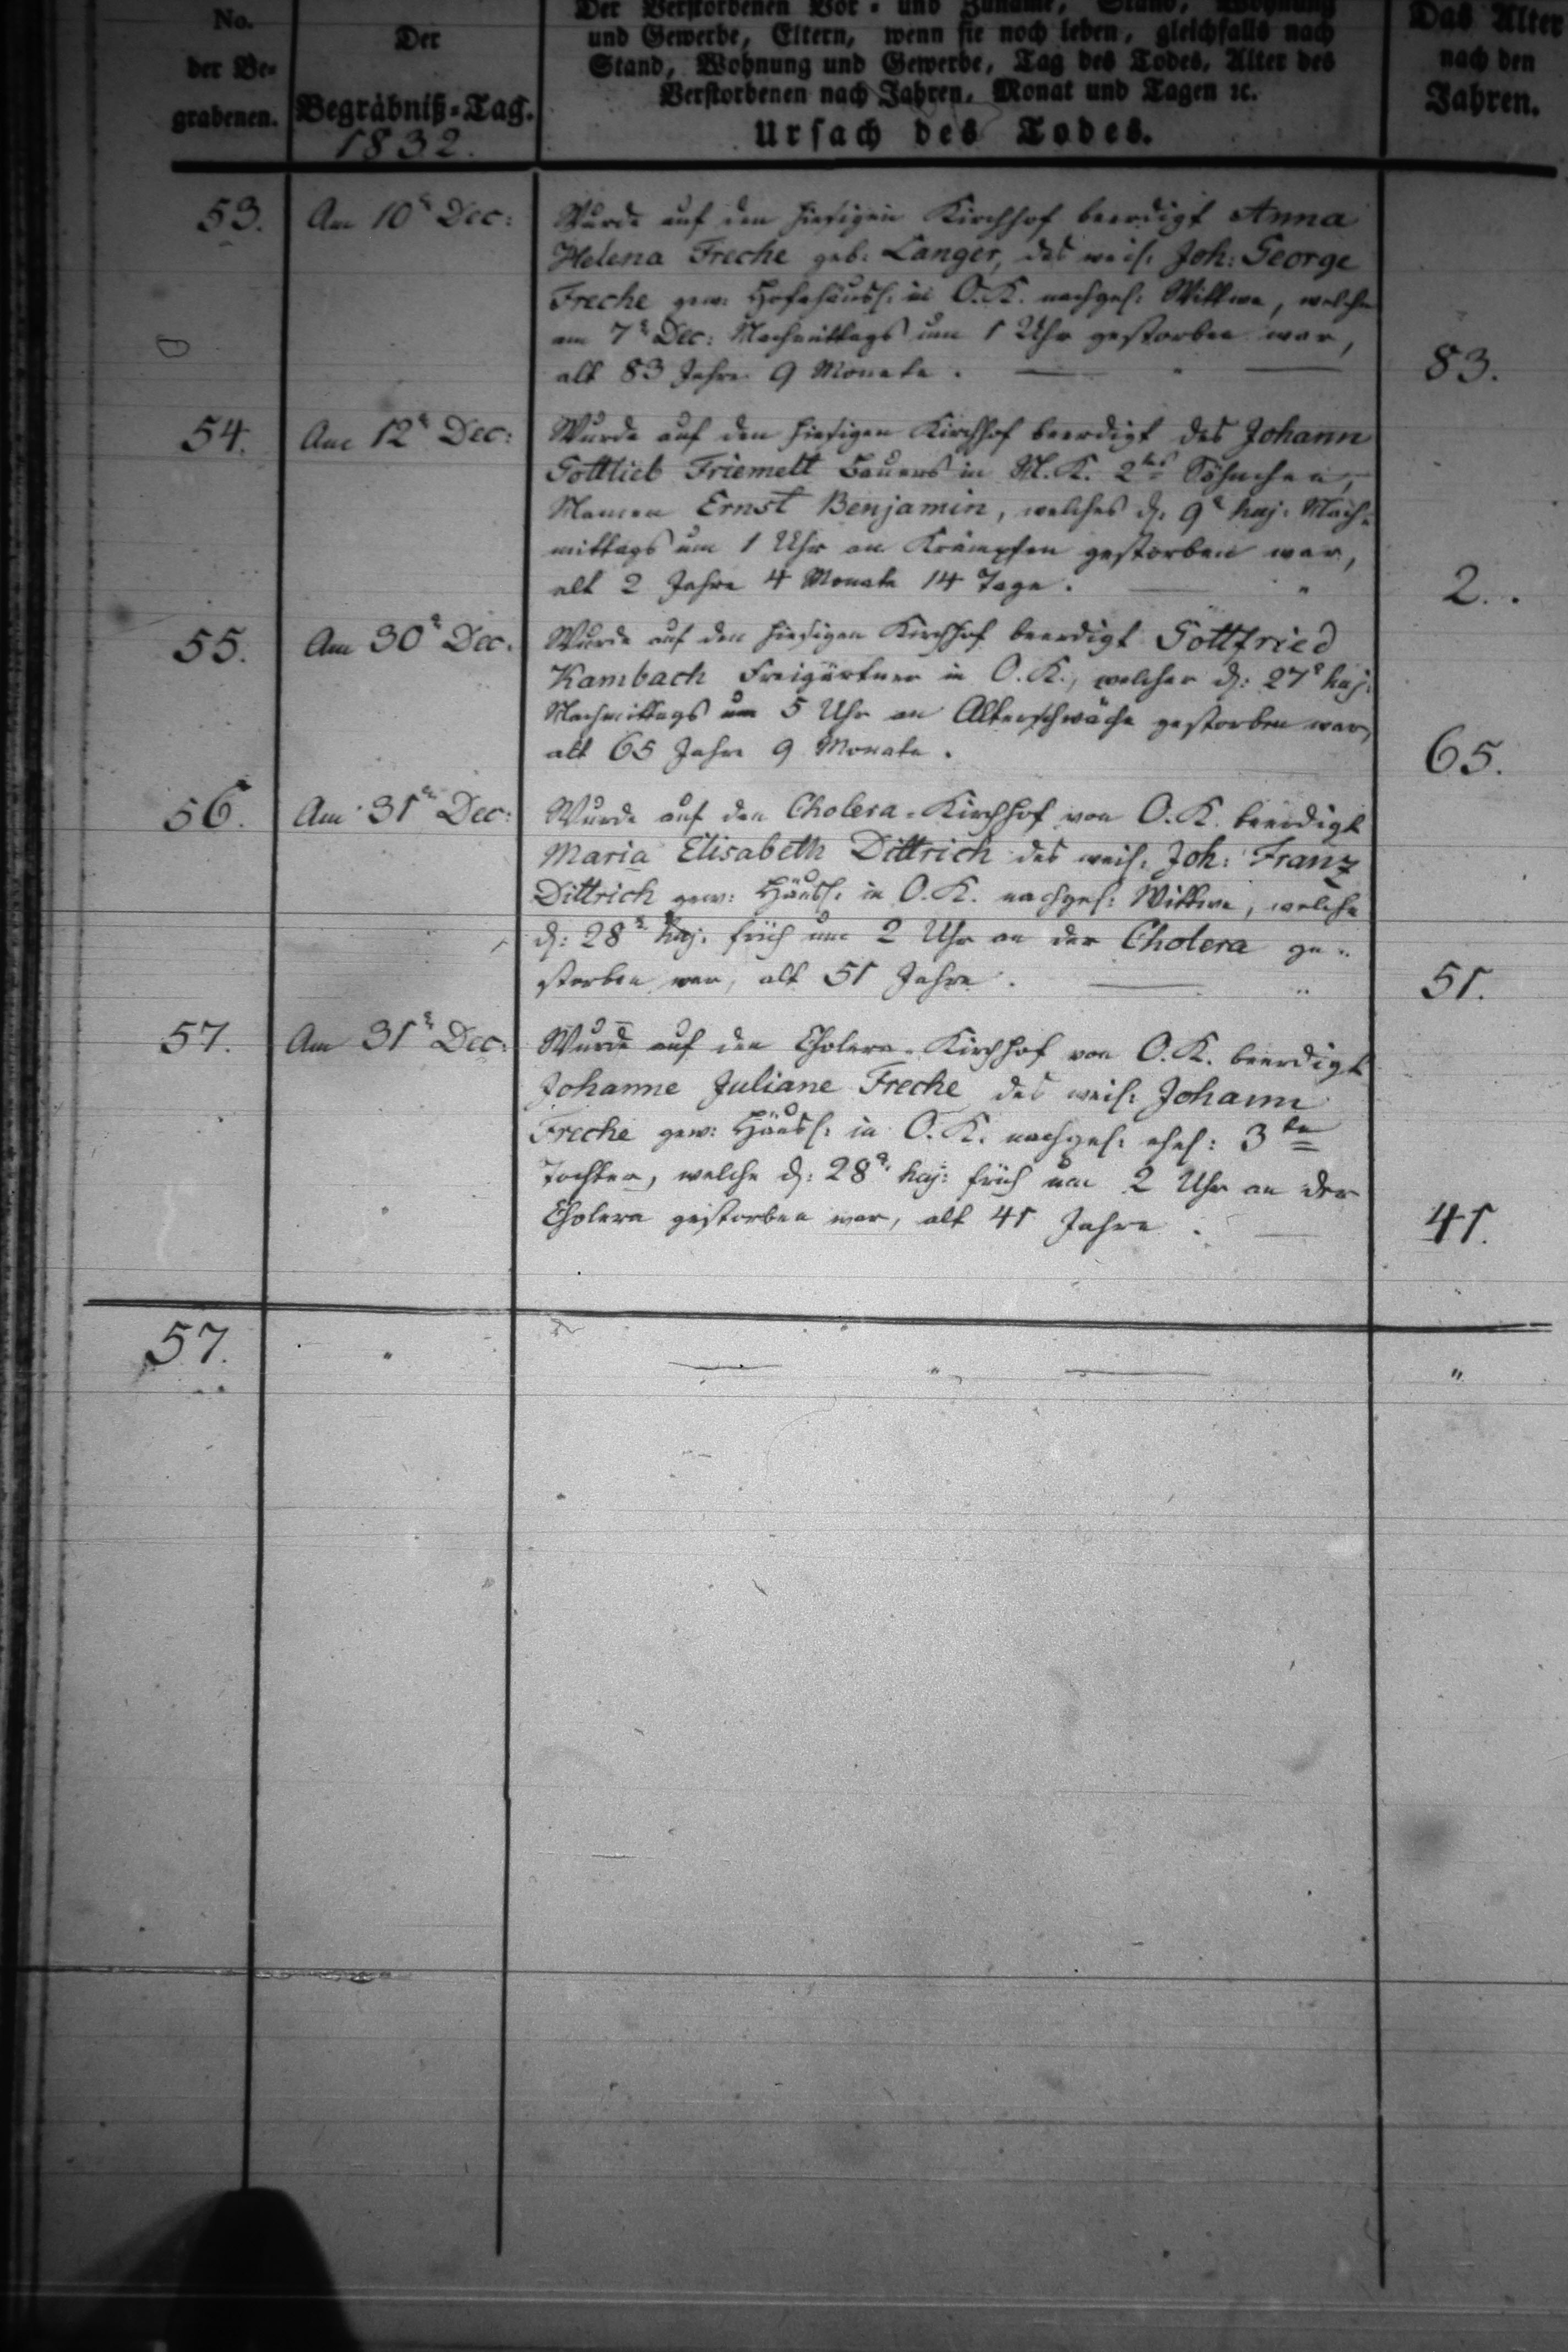 No.
der Be-
grabenen.
Der
Begräbniß-Tag.
1832.
Der Verstorbenen Vor- und Zuname, Stand, Wohnung
und Gewerbe, Eltern, wenn sie noch leben, gleichfalls nach
Stand, Wohnung und Gewerbe, Tag des Todes, Alter des
Verstorbenen nach Jahren, Monat und Tagen ꝛc.
Ursach des Todes.
Das Alter
nach den
Jahren.
53.
Am 10ᵗ Dec:
Wurde auf den hiesigen Kirchhof beerdigt Anna
Helena Freche geb: Langer, des weil: Joh: George
Freche gew: Hofehäusl: in O.K. nachgel: Wittwe, welche
am 7ᵗ Dec: Nachmittags um 1 Uhr gestorben war,
alt 83 Jahre 9 Monate.
83.
54.
Am 12ᵗ Dec:
Wurde auf den hiesigen Kirchhof beerdigt des Johann
Gottlieb Friemelt Bauers in M.K. 2tes Söhnchen,
Namen Ernst Benjamin, welches d: 9ᵗ huj: Nach-
mittags um 1 Uhr an Krämpfen gestorben war,
alt 2 Jahre 4 Monate 14 Tage.
2.
55.
Am 30ᵗ Dec.
Wurde auf den hiesigen Kirchhof beerdigt Gottfried
Kambach Freigärtner in O.K., welcher d: 27ᵗ huj:
Nachmittags um 5 Uhr an Alterschwäche gestorben war,
alt 65 Jahre 9 Monate.
65.
56.
Am 31ᵗ Dec:
Wurde auf den Cholera-Kirchhof von O.K. beerdigt
Maria Elisabeth Dittrich des weil: Joh: Franz
Dittrich gew: Häusl: in O.K. nachgel: Wittwe, welche
d: 28ᵗ huj. früh um 2 Uhr an der Cholera ge-
storben war, alt 51 Jahre.
51.
57.
Am 31ᵗ Dec:
Wurde auf den Cholera-Kirchhof von O.K. beerdigt
Johanne Juliane Freche des weil: Johann
Freche gew: Häusl: in O.K. nachgel: ehel: 3te
Tochter, welche d: 28ᵗ huj: früh um 2 Uhr an der
Cholera gestorben war, alt 41 Jahre.
41.
57.